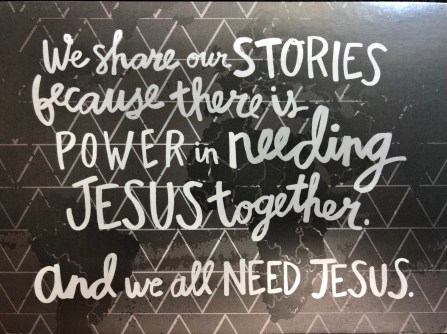 We share our STORIES
because there is
POWER in needing
JESUS together.
and we all NEED JESUS.